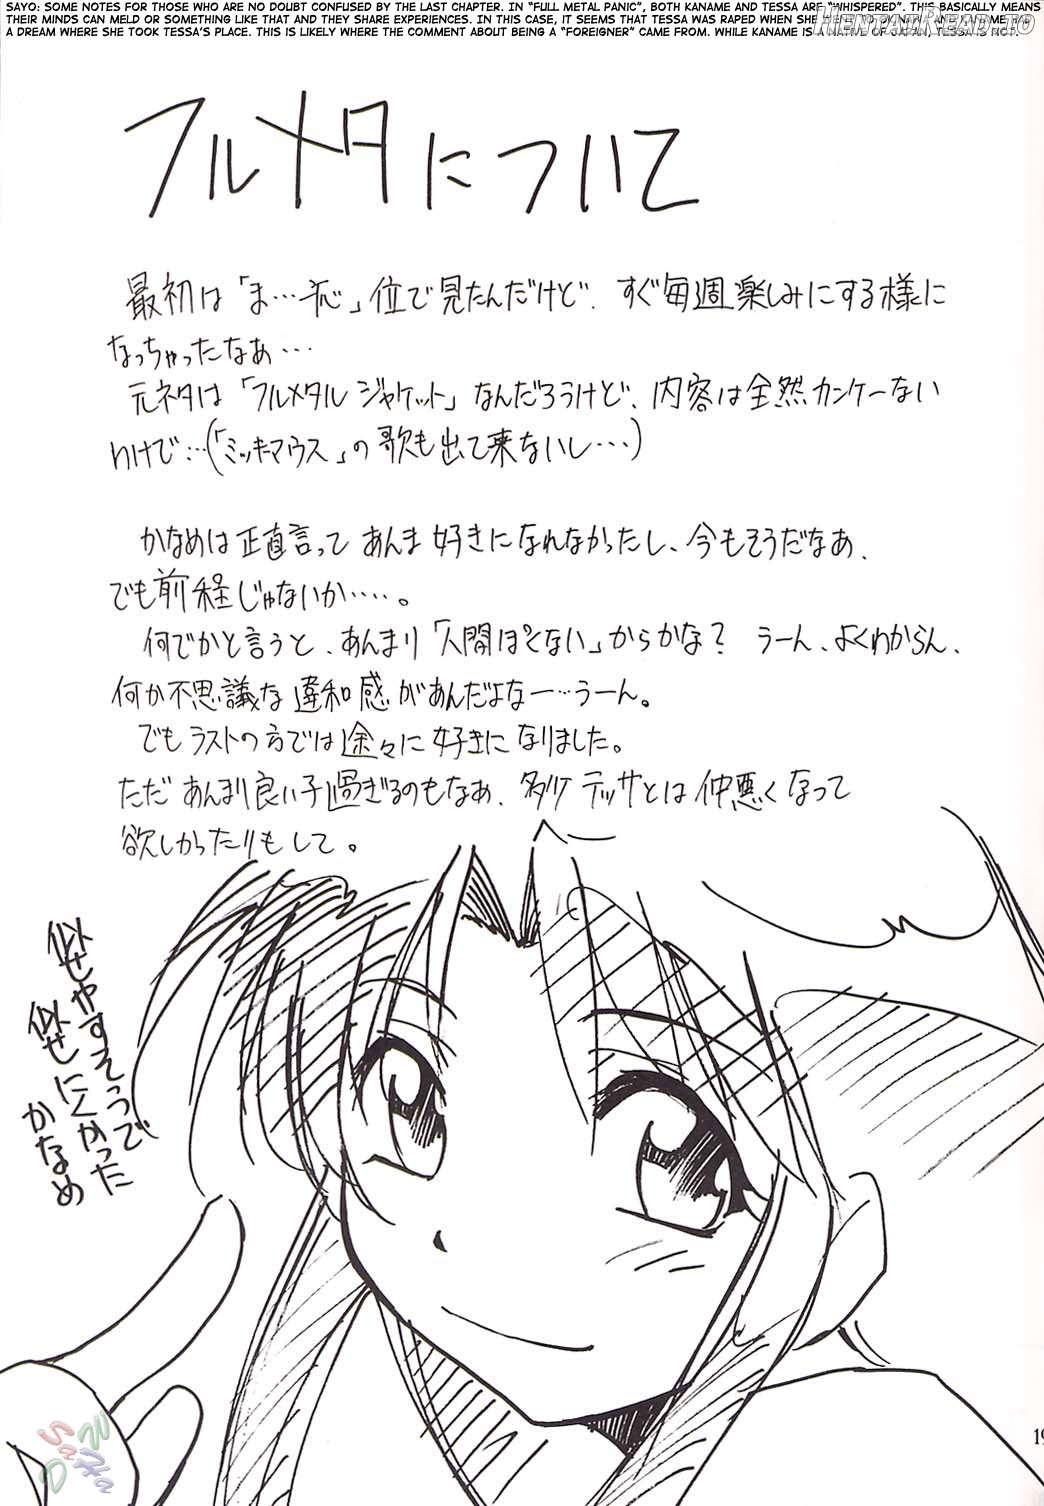 SAYO: SOME NOTES FOR THOSE WHO ARE NO DOUBT CONFUSED BY THE LAST CHAPTER. IN “FULL METAL PANIC”, BOTH KANAME AND TESSA ARE “WHISPERED”. THIS BASICALLY MEANS
THEIR MINDS CAN MELD OR SOMETHING LIKE THAT AND THEY SHARE EXPERIENCES. IN THIS CASE, IT SEEMS THAT TESSA WAS RAPED WHEN SHE WENT TO AND KANAME HAD
A DREAM WHERE SHE TOOK TESSA’S PLACE. THIS IS LIKELY WHERE THE COMMENT ABOUT BEING A “FOREIGNER” CAME FROM. WHILE KANAME IS A NATIVE OF JAPAN, TESSA IS NOT.
HentaiRead.to
フルメタについて
最初は「ま…応」位で見たんだけど、すぐ毎週楽しみにする様に
なっちゃったなあ…
元ネタは「フルメタル ジャケット」なんだろうけど、内容は全然カンケーない
わけで…(「ミッキーマウス」の歌も出て来ないし…)
かなめは正直言って あんま好きになれなかったし、今もそうだなあ、
でも前程じゃないか……。
何でかと言うと、あんまり「人間ぽくない」からかな? うーん、よくわからん、
何か不思議な違和感があんだよなー…うーん。
でもラストの方では途々に好きになりました。
ただ あんまり良い子過ぎるのもなぁ、多少 テッサとは仲悪くなって
欲しかったりもして。
似せやすそうで
似せにくかった
かなめ
SaWa
19